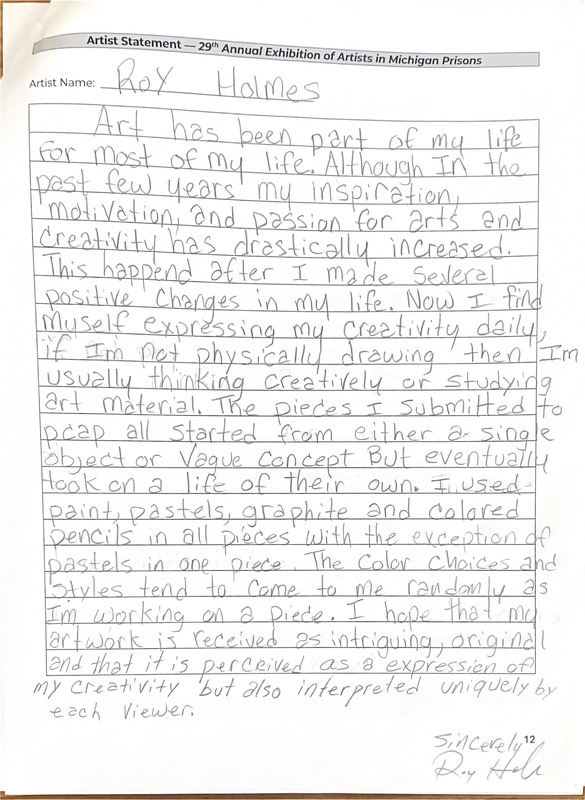 Artist Statement — 29th Annual Exhibition of Artists in Michigan Prisons
Artist Name: Roy Holmes
Art has been part of my life
for most of my life. Although In the
past few years my inspiration,
motivation, and passion for arts and
creativity has drastically increased.
This happend after I made several
positive changes in my life. Now I find
myself expressing my creativity daily,
if Im not physically drawing then Im
usually thinking creatively or studying
art material. The pieces I submitted to
pcap all started from either a single
object or vague concept But eventually
took on a life of their own. I used
paint, pastels, graphite and colored
pencils in all pieces with the exception of
pastels in one piece. The Color Choices and
styles tend to come to me randomly as
Im working on a piece. I hope that my
artwork is received as intriguing, original
and that it is perceived as a expression of
my creativity but also interpreted uniquely by
each viewer.
Sincerely 12
Roy Hol